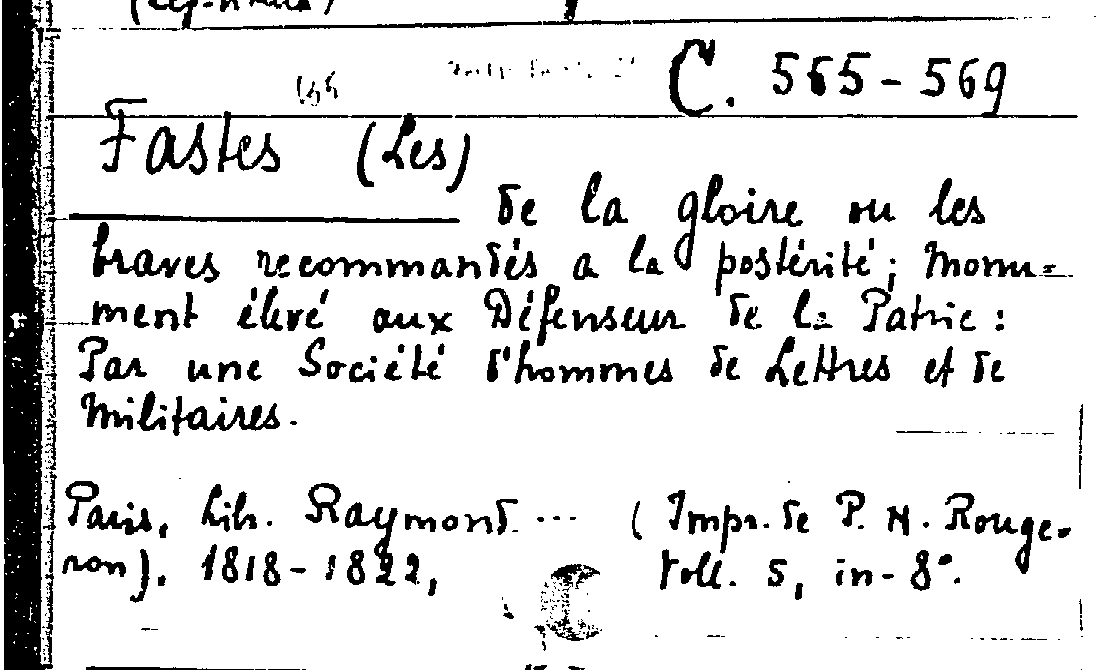 C. 565-569
Fastes (Les)
de la gloire ou les
braves recommandés a la postérité; Monu=
ment élevé aux Défenseur de la Patrie:
Par une Société d'hommes de Lettres et de
Militaires.
Paris, Lib. Raymond... (Impr. de P. N. Rouge-
ron), 1818-1822, Voll. 5, in-8°.